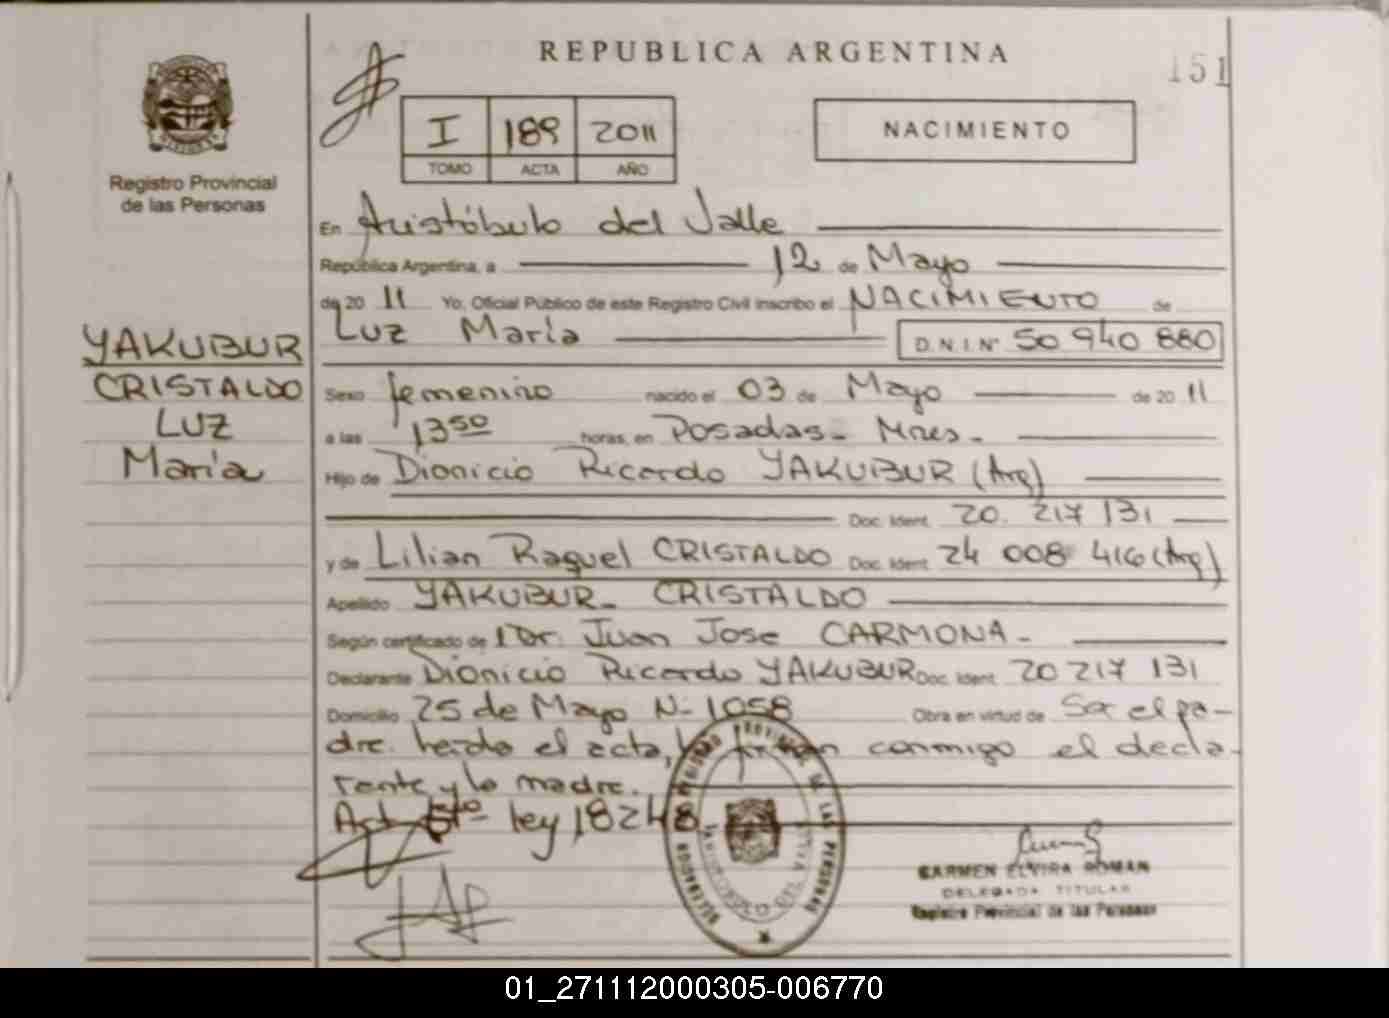 REPUBLICA ARGENTINA
151
Registro Provincial
de las Personas
I 189 2011
TOMO ACTA AÑO
NACIMIENTO
En Aristóbulo del Valle
República Argentina, a 12 de Mayo
de 20 11 Yo, Oficial Público de este Registro Civil inscribo el NACIMIENTO de
Luz María D.N.I. Nº 50 940 880
YAKUBUR
CRISTALDO
LUZ
María
Sexo femenino nacido el 03 de Mayo de 20 11
a las 13 50 horas, en Posadas - Mnes -
Hijo de Dionicio Ricardo YAKUBUR (Arg)
Doc. Ident. 20. 217 131
y de Lilian Raquel CRISTALDO Doc. Ident. 24 008 416 (Arg)
Apellido YAKUBUR - CRISTALDO
Según certificado de Dr. Juan Jose CARMONA -
Declarante Dionicio Ricardo YAKUBUR Doc. Ident. 20 217 131
Domicilio 25 de Mayo Nº 1058 Obra en virtud de Ser el pa-
dre. leida el acta, firman conmigo el decla-
rante y la madre.
Art 5to ley 18248
REGISTRO PROVINCIAL DE LAS PERSONAS
ARISTOBULO DEL VALLE
CARMEN ELVIRA ROMAN
DELEGADA TITULAR
Registro Provincial de las Personas
01_271112000305-006770